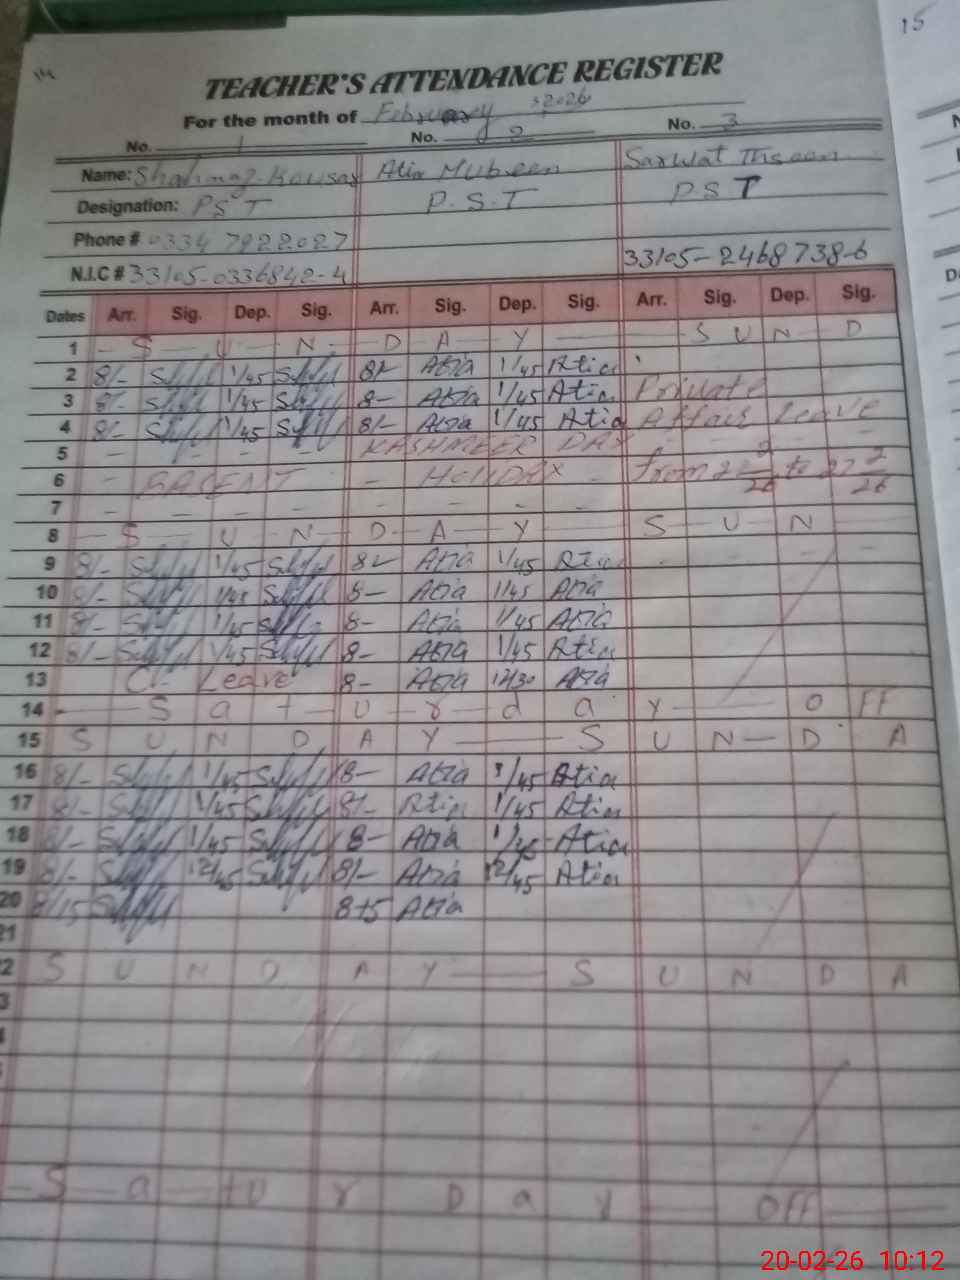 14
15
TEACHER'S ATTENDANCE REGISTER
For the month of February 2026
No. 1 No. 2 No. 3
Name: Shahnaz Kousar Atia Mubeen Sarwat
Designation: PST P.S.T P.S T
Phone # 0334 7922027
N.I.C # 33105-0336842-4 33105-2468738-6
Dates Arr. Sig. Dep. Sig. Arr. Sig. Dep. Sig. Arr. Sig. Dep. Sig.
1 - S - U - N - D - A - Y - S U N D
2 8/- 1/45 8/- Atia 1/45 Atia
3 8/- 1/45 8- Atia 1/45 Atia Private
4 8/- 1/45 8/- Atia 1/45 Atia Affair Leave
5 - - - - KASHMEER DAY - - -
6 - BASENT - HOLIDAY - from 2 to 27 2/26
7 - - - - - - -
8 - S - U - N - D - A - Y - S - U - N
9 8/- 1/45 8- Atia 1/45 Atia
10 8/- 1/45 8- Atia 1/45 Atia
11 8/- 1/45 8- Atia 1/45 Atia
12 8/- 1/45 8- Atia 1/45 Atia
13 Leave 8- Atia 12/30 Atia
14 - S a t u r d a y - O FF
15 S U N D A Y - S U N - D A
16 8/- 1/45 8- Atia 1/45 Atia
17 8/- 1/45 8/- Atia 1/45 Atia
18 8/- 1/45 8- Atia 1/45 Atia
19 8/- 12/45 8/- Atia 12/45 Atia
20 8/15 8+5 Atia
21
2 S U N D A Y - S U N D A
3
- S - a - t u r D a y - OFF
20-02-26 10:12